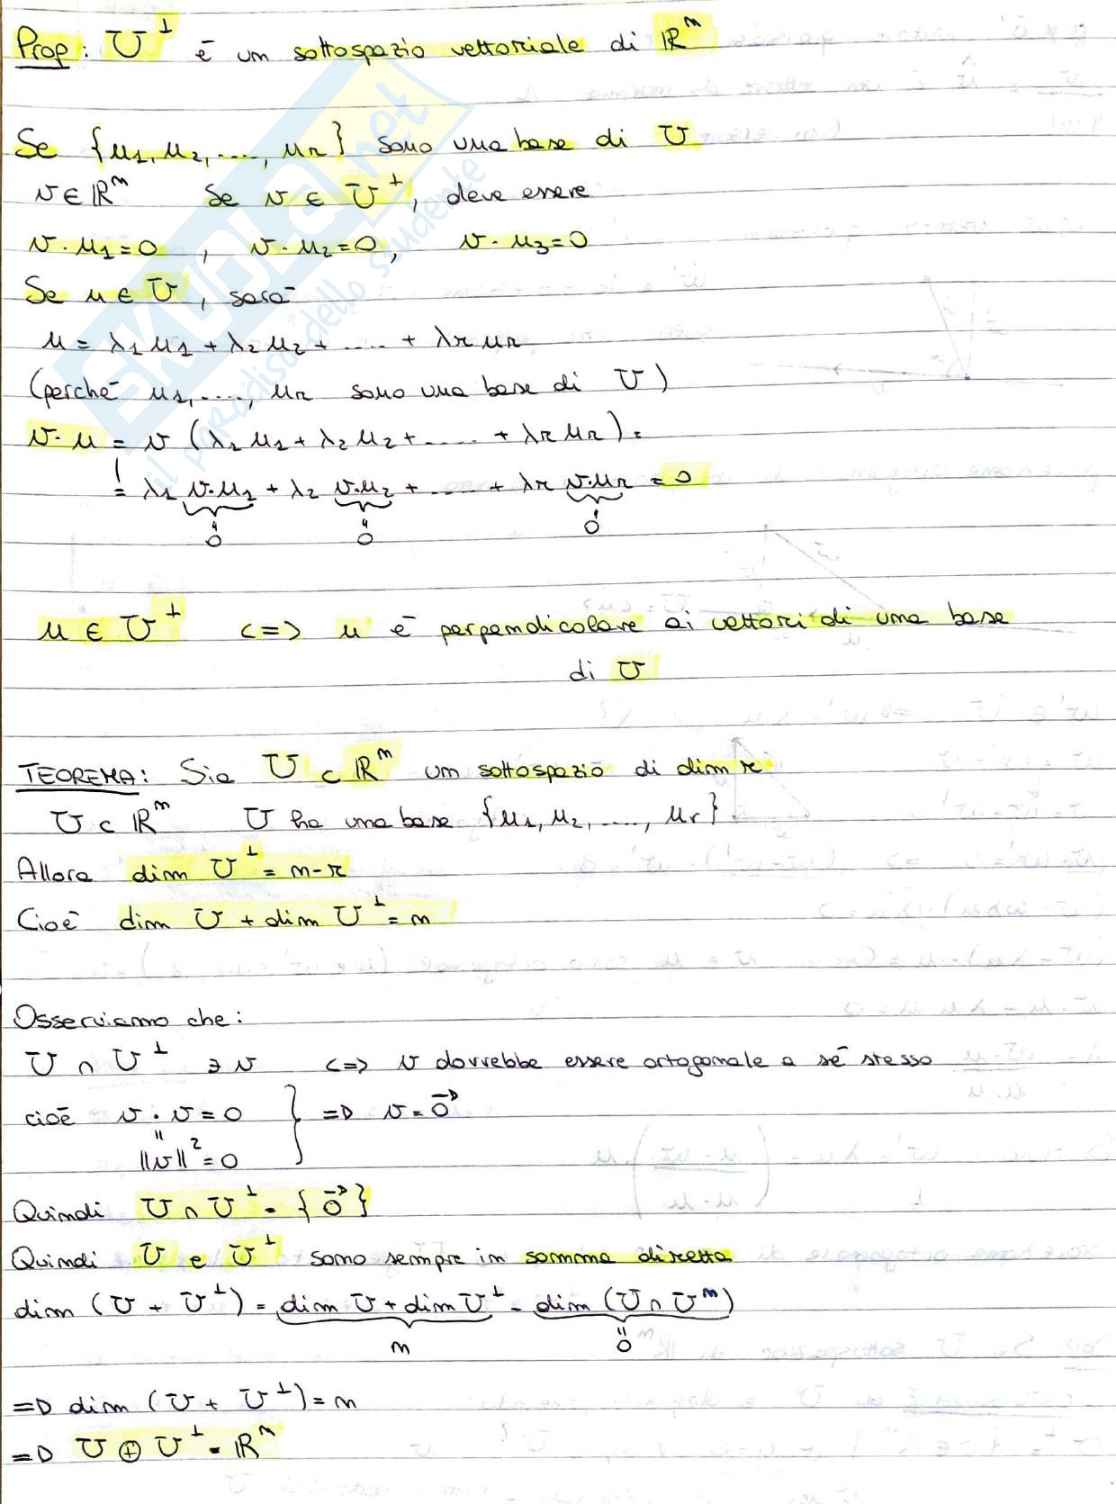 Prop: U^⊥ è un sottospazio vettoriale di ℝ^n
Se {u₁, u₂, ...., u_r} sono una base di U
v ∈ ℝ^n Se v ∈ U^⊥, deve essere
v·u₁=0 , v·u₂=0, v·u₃=0
Se u ∈ U, sarà
u = λ₁u₁ + λ₂u₂ + .... + λr ur
(perché u₁, ...., ur sono una base di U)
v·u = v (λ₁u₁ + λ₂u₂ + ..... + λr ur) =
= λ₁ v·u₁ + λ₂ v·u₂ + ..... + λr v·ur = 0
0 0 0
u ∈ U^⊥ <=> u è perpendicolare ai vettori di una base
di U
TEOREMA: Sia U ⊂ ℝ^n un sottospazio di dim r
U ⊂ ℝ^n U ha una base {u₁, u₂, ...., ur}
Allora dim U^⊥ = n-r
Cioè dim U + dim U^⊥ = n
Osserviamo che:
U ∩ U^⊥ ∋ v <=> v dovrebbe essere ortogonale a sé stesso
cioè v · v = 0 } => v = 0⃗
||v||² = 0
Quindi U ∩ U^⊥ = {0⃗}
Quindi U e U^⊥ sono sempre in somma diretta
dim (U + U^⊥) = dim U + dim U^⊥ - dim (U ∩ U^n)
n 0
=> dim (U + U^⊥) = n
=> U ⊕ U^⊥ = ℝ^n
SKUOLA.net
il paradiso dello studente